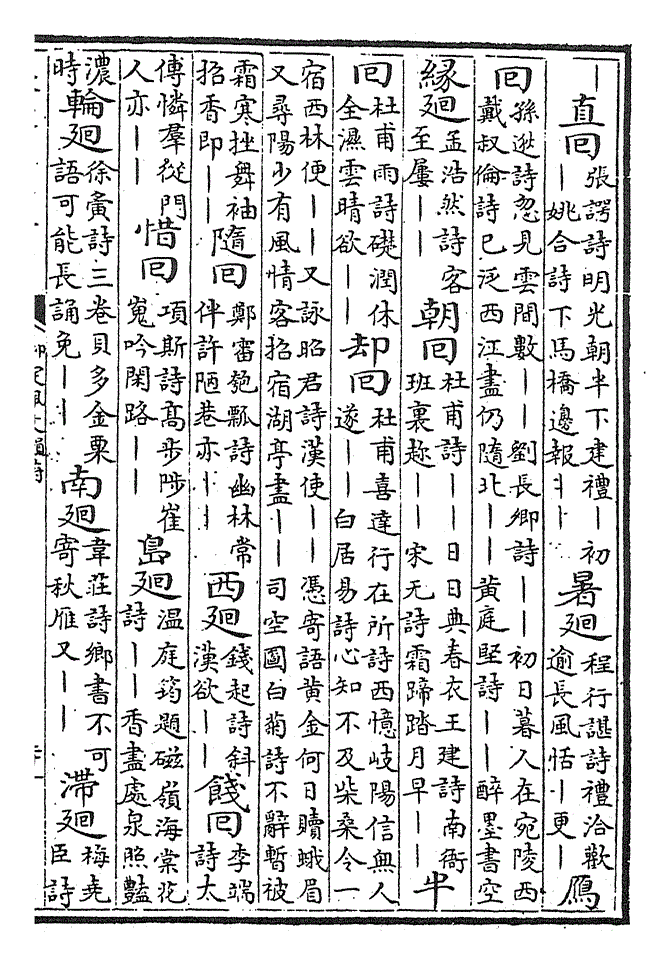 ｜直回張諤詩明光朝半下建禮｜初｜姚合詩下馬橋邊報｜｜暑廻程行諶詩禮洽歡逾長風恬｜更｜鴈
回孫逖詩忽見雲間數｜｜劉長卿詩｜｜初日暮人在宛陵西戴叔倫詩已泛西江盡仍隨北｜｜黄庭堅詩｜｜醉墨書空
緣廻孟浩然詩客至屢｜｜朝回杜甫詩｜｜日日典春衣王建詩南衙班裏趂｜｜宋无詩霜蹄踏月早｜｜牛
回杜甫雨詩礎潤休全濕雲晴欲｜｜却回杜甫喜達行在所詩西憶岐陽信無人遂｜｜白居易詩心知不及柴桑令一
宿西林便｜｜又詠昭君詩漢使｜｜憑寄語黄金何日贖蛾眉又尋陽少有風情客招宿湖亭盡｜｜司空圖白菊詩不辭暫被
霜寒挫舞袖招香即｜｜隨回鄭審匏瓢詩幽林常伴許陋巷亦｜｜西廻錢起詩斜漢欲｜｜餞回李端詩太
傅憐羣從門人亦｜｜惜回項斯詩髙步陟崔嵬吟閑路｜｜島廻温庭筠題磁嶺海棠花詩｜｜香盡處泉照豔
濃時輪廻徐夤詩三卷貝多金粟語可能長誦免｜｜南廻韋莊詩鄉書不可寄秋雁又｜｜滯廻梅堯臣詩